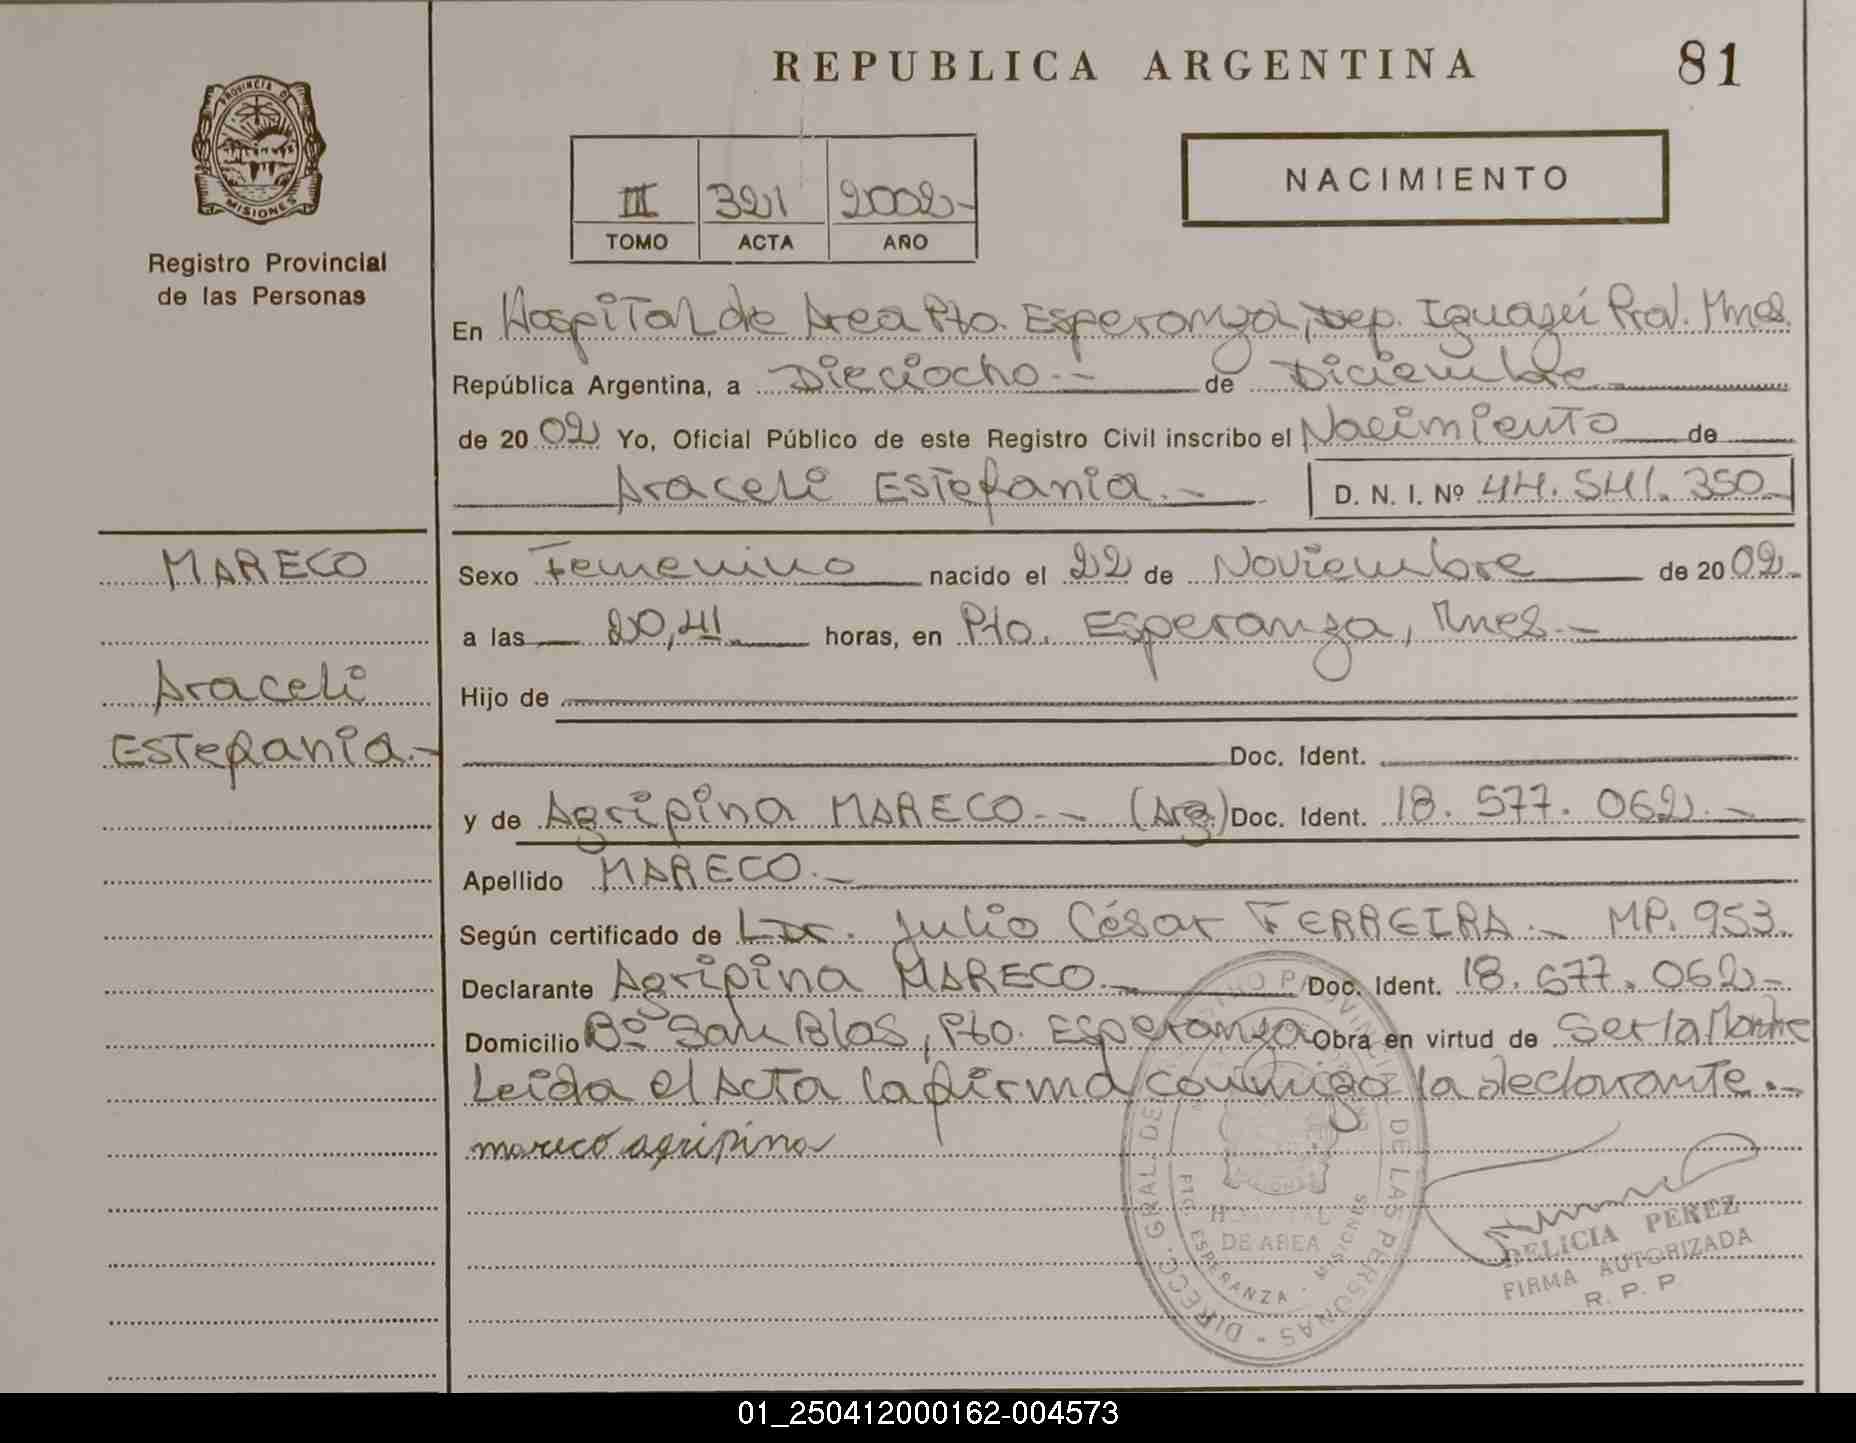 REPUBLICA ARGENTINA
81
PROVINCIA DE
MISIONES
Registro Provincial
de las Personas
III 321 2002-
TOMO ACTA AÑO
NACIMIENTO
En Hospital de Area Pto. Esperanza, Dep. Iguazú Prov. Mnes.
República Argentina, a Dieciocho.- de Diciembre
de 2002 Yo, Oficial Público de este Registro Civil inscribo el Nacimiento de
Araceli Estefania.- D. N. I. Nº 44.541.350
MARECO
Araceli
Estefania.-
Sexo Femenino nacido el 22 de Noviembre de 2002
a las 20,41 horas, en Pto. Esperanza, Mnes.-
Hijo de
Doc. Ident.
y de Agripina MARECO.- (Arg.) Doc. Ident. 18.577.062.-
Apellido MARECO.-
Según certificado de Dr. Julio César FERREIRA.- MP. 953.
Declarante Agripina MARECO.- Doc. Ident. 18.577.062-
Domicilio Bº San Blas, Pto. Esperanza Obra en virtud de Ser la Madre
Leida el Acta la firma conmigo la declarante.-
mareco agripina
DIRECC. GRAL. DE PROVINCIAL DE LAS PERSONAS
HOSPITAL
DE AREA
PTO. ESPERANZA - MISIONES
DELICIA PEREZ
FIRMA AUTORIZADA
R. P. P.
01_250412000162-004573